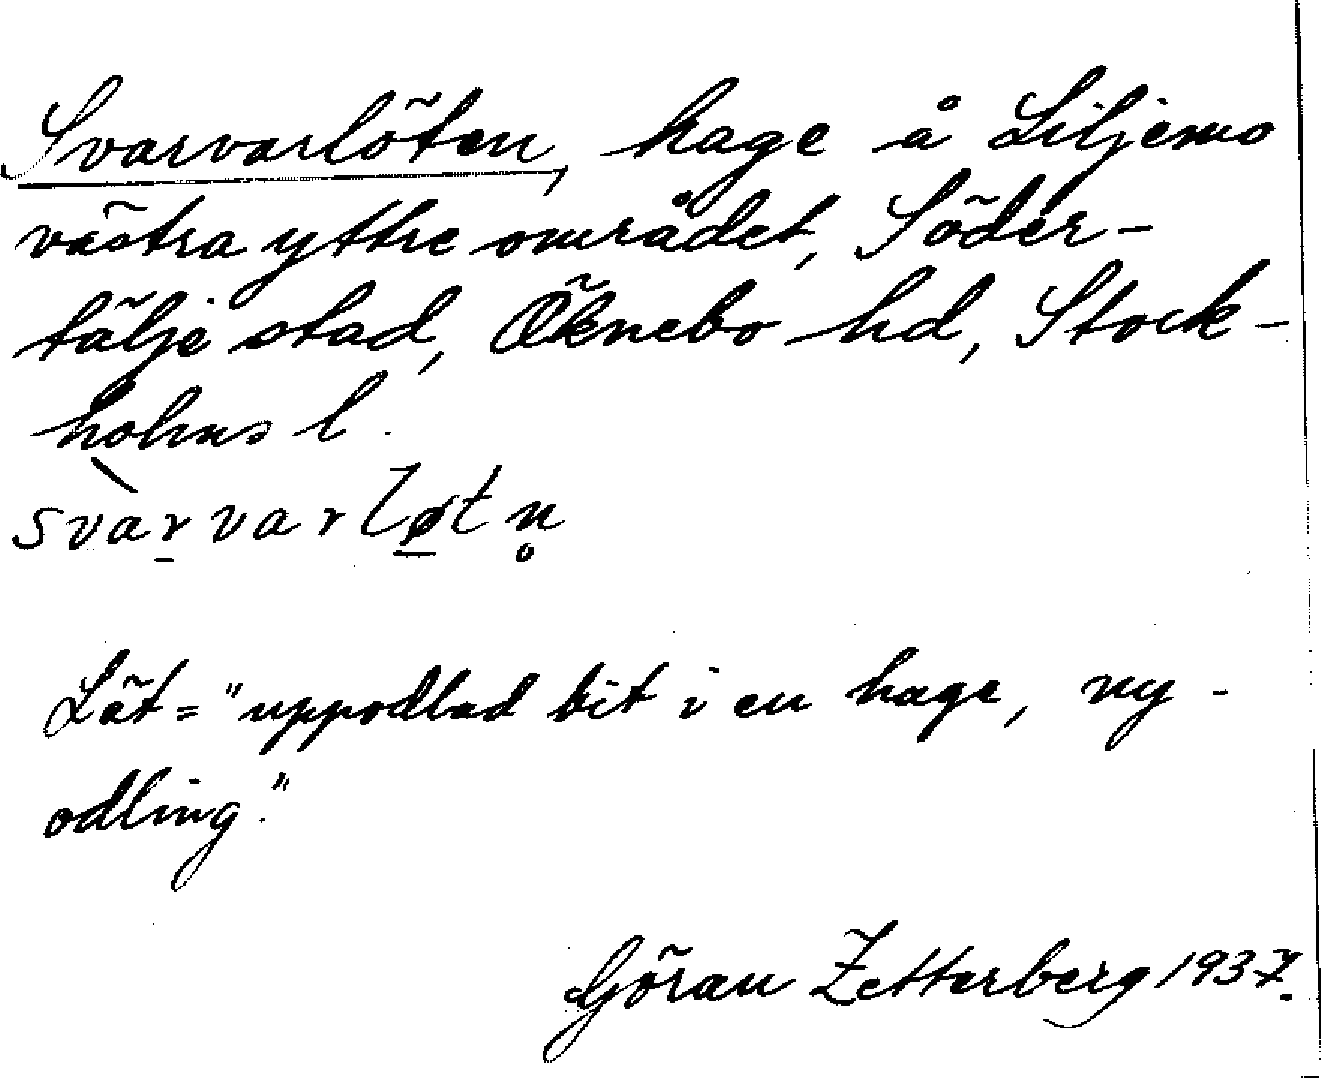 Svarvarlöten, hage å Liljemo
västra yttre området, Söder-
tälje stad, Öknebo hd, Stock-
holms l.
svàr̠varlø̠tn̥
Löt = "uppodlad bit i en hage, ny-
odling."
Göran Zetterberg 1937.